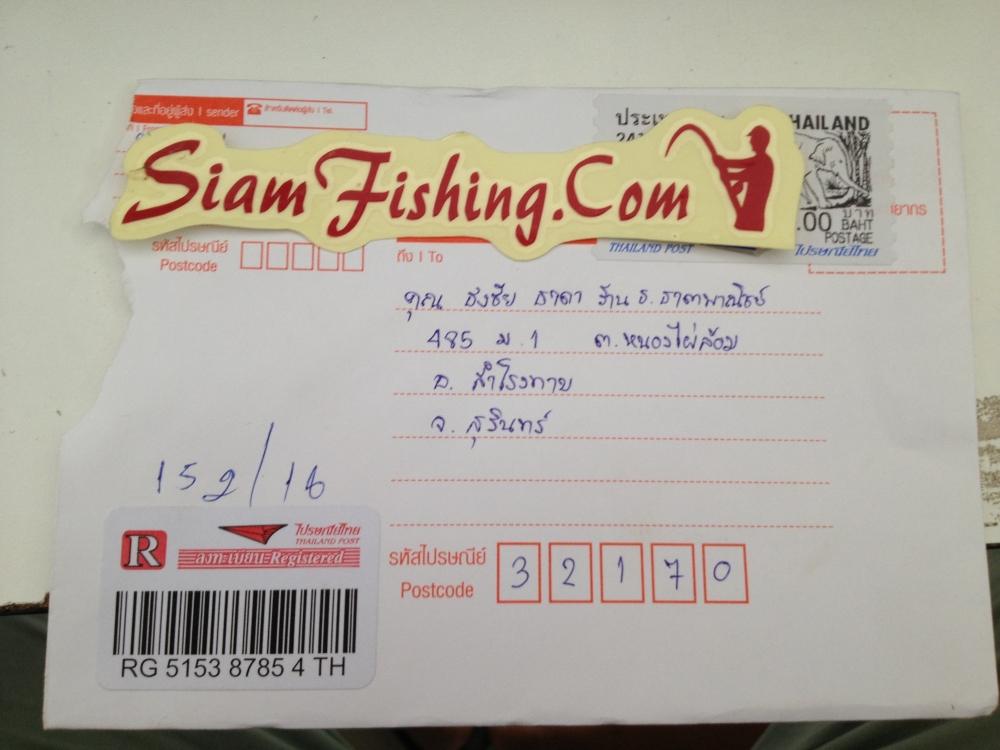 และที่อยู่ผู้ส่ง | sender
สำหรับติดต่อผู้ส่ง | Tel.
HAILAND
SiamFishing.Com
.00 บาท
BAHT
POSTAGE
THAILAND POST
ไปรษณีย์ไทย
รหัสไปรษณีย์
Postcode
ถึง | To
คุณ ธงชัย ธาดา ร้าน ธ.ธาดาพาณิชย์
485 ม.1 ต.หนองไผ่ล้อม
อ. สำโรงทาบ
จ. สุรินทร์
152/16
R
ไปรษณีย์ไทย
THAILAND POST
ลงทะเบียน Registered
RG 5153 8785 4 TH
รหัสไปรษณีย์
Postcode
3 2 1 7 0